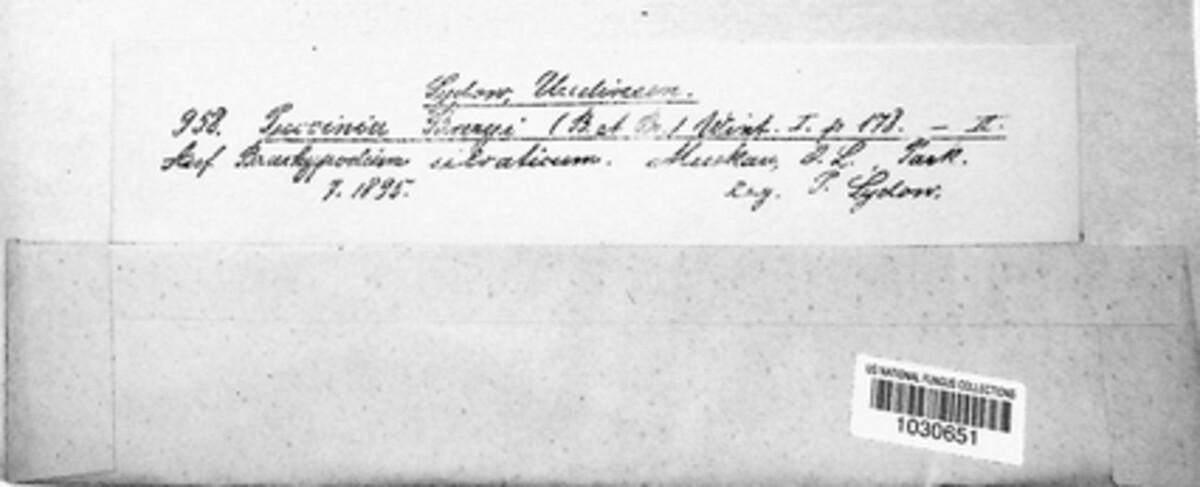 Sydow, Uredineen.
958. Puccinia Baryi (B. et Br.) Wint. I. p. 178. - II.
Auf Brachypodium silvaticum. Muskau, O. L., Park.
7. 1895. Leg. P. Sydow.
US NATIONAL FUNGUS COLLECTIONS
1030651